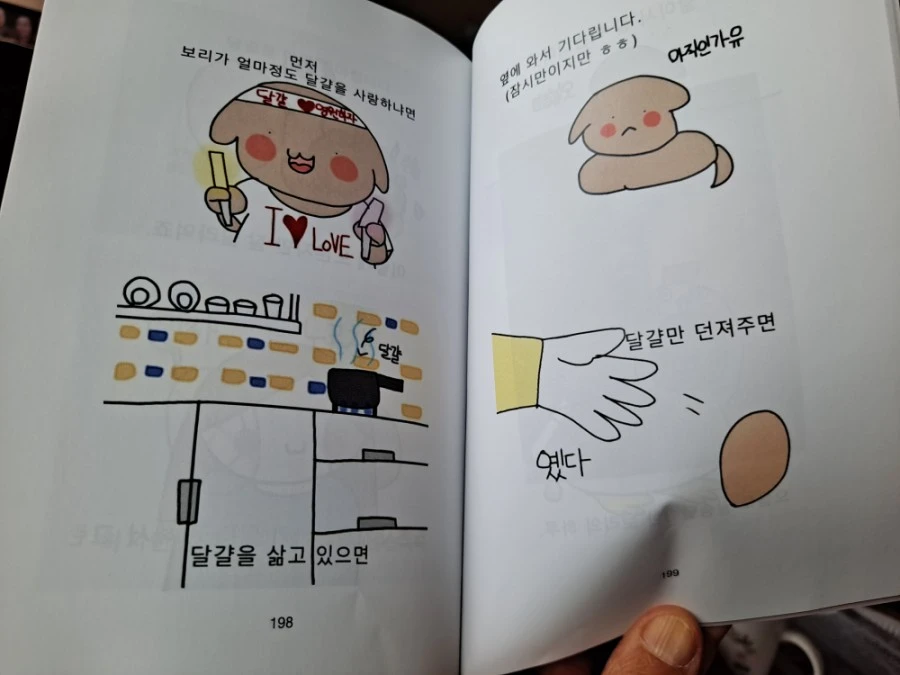 먼저
보리가 얼마정도 달걀을 사랑하냐면
달걀 ♥ 영원하자
I ♥ LOVE
달걀
달걀을 삶고 있으면
198
옆에 와서 기다립니다.
(잠시만이지만 ㅎㅎ)
아직인가유
달걀만 던져주면
옜다
199